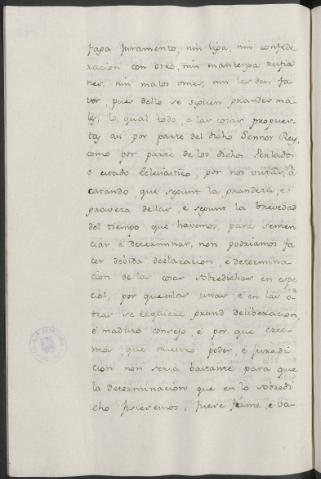 faga Juramento, nin liga, nin confede-
racion con otro, nin mantenga rufia
nes, nin malos omes, nin les den fa
vor, pues dello se siguen grandes ma
les; lo qual todo, e las cosas propues
tas asi por parte del dicho Sennor Rey,
como por parte de los dichos Perlados
e estado Eclesiastico, por nos vistas, a
catando que segunt la grandeza, e
graveza dellas, e segunt la brevedad
del tiempo que havemos, para senten
ciar e determinar, non podriamos fa
cer debida declaracion, e determina
cion de las cosas sobredichas en espe
cial, por quanto las unas e en las o-
tras se requiere grand deliberacion,
e maduro consejo, e por que cree
mos que nuestro poder, e juredi
cion non seria bastante para que
la determinacion que en lo sobredi
cho ficiesemos, fuese firme, e va-